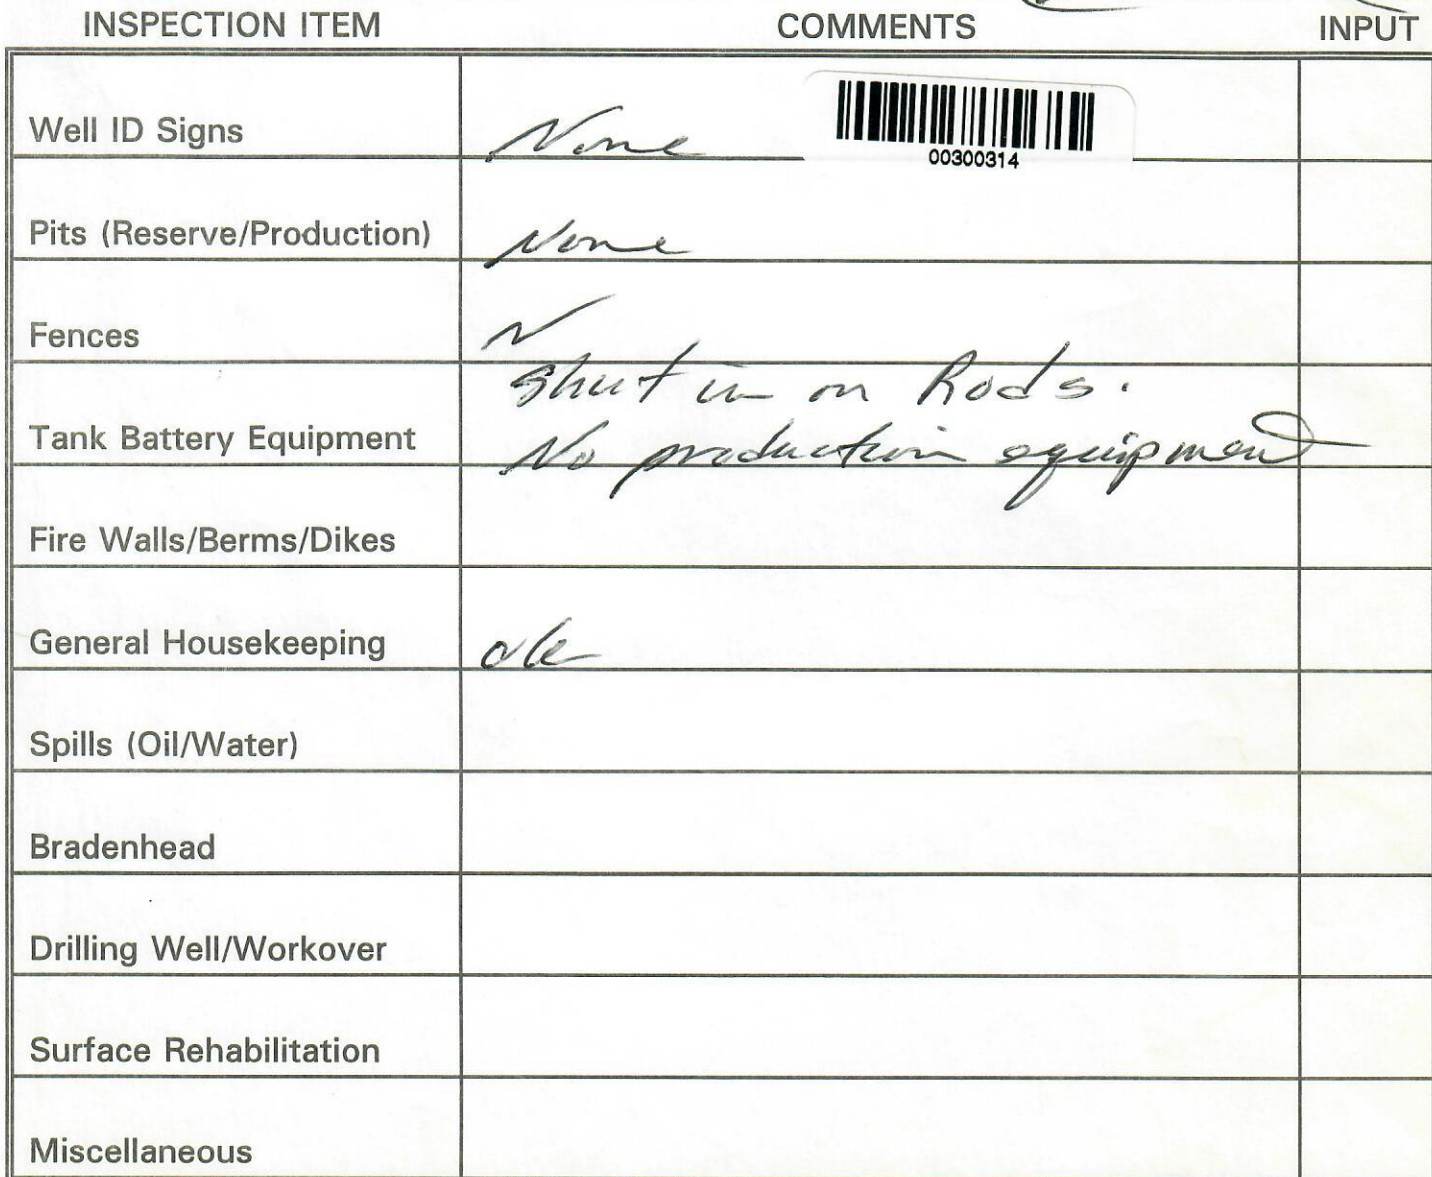 INSPECTION ITEM COMMENTS INPUT
Well ID Signs None
00300314
Pits (Reserve/Production) None
Fences N
Shut in on Rods.
Tank Battery Equipment No production equipment
Fire Walls/Berms/Dikes
General Housekeeping ok
Spills (Oil/Water)
Bradenhead
Drilling Well/Workover
Surface Rehabilitation
Miscellaneous